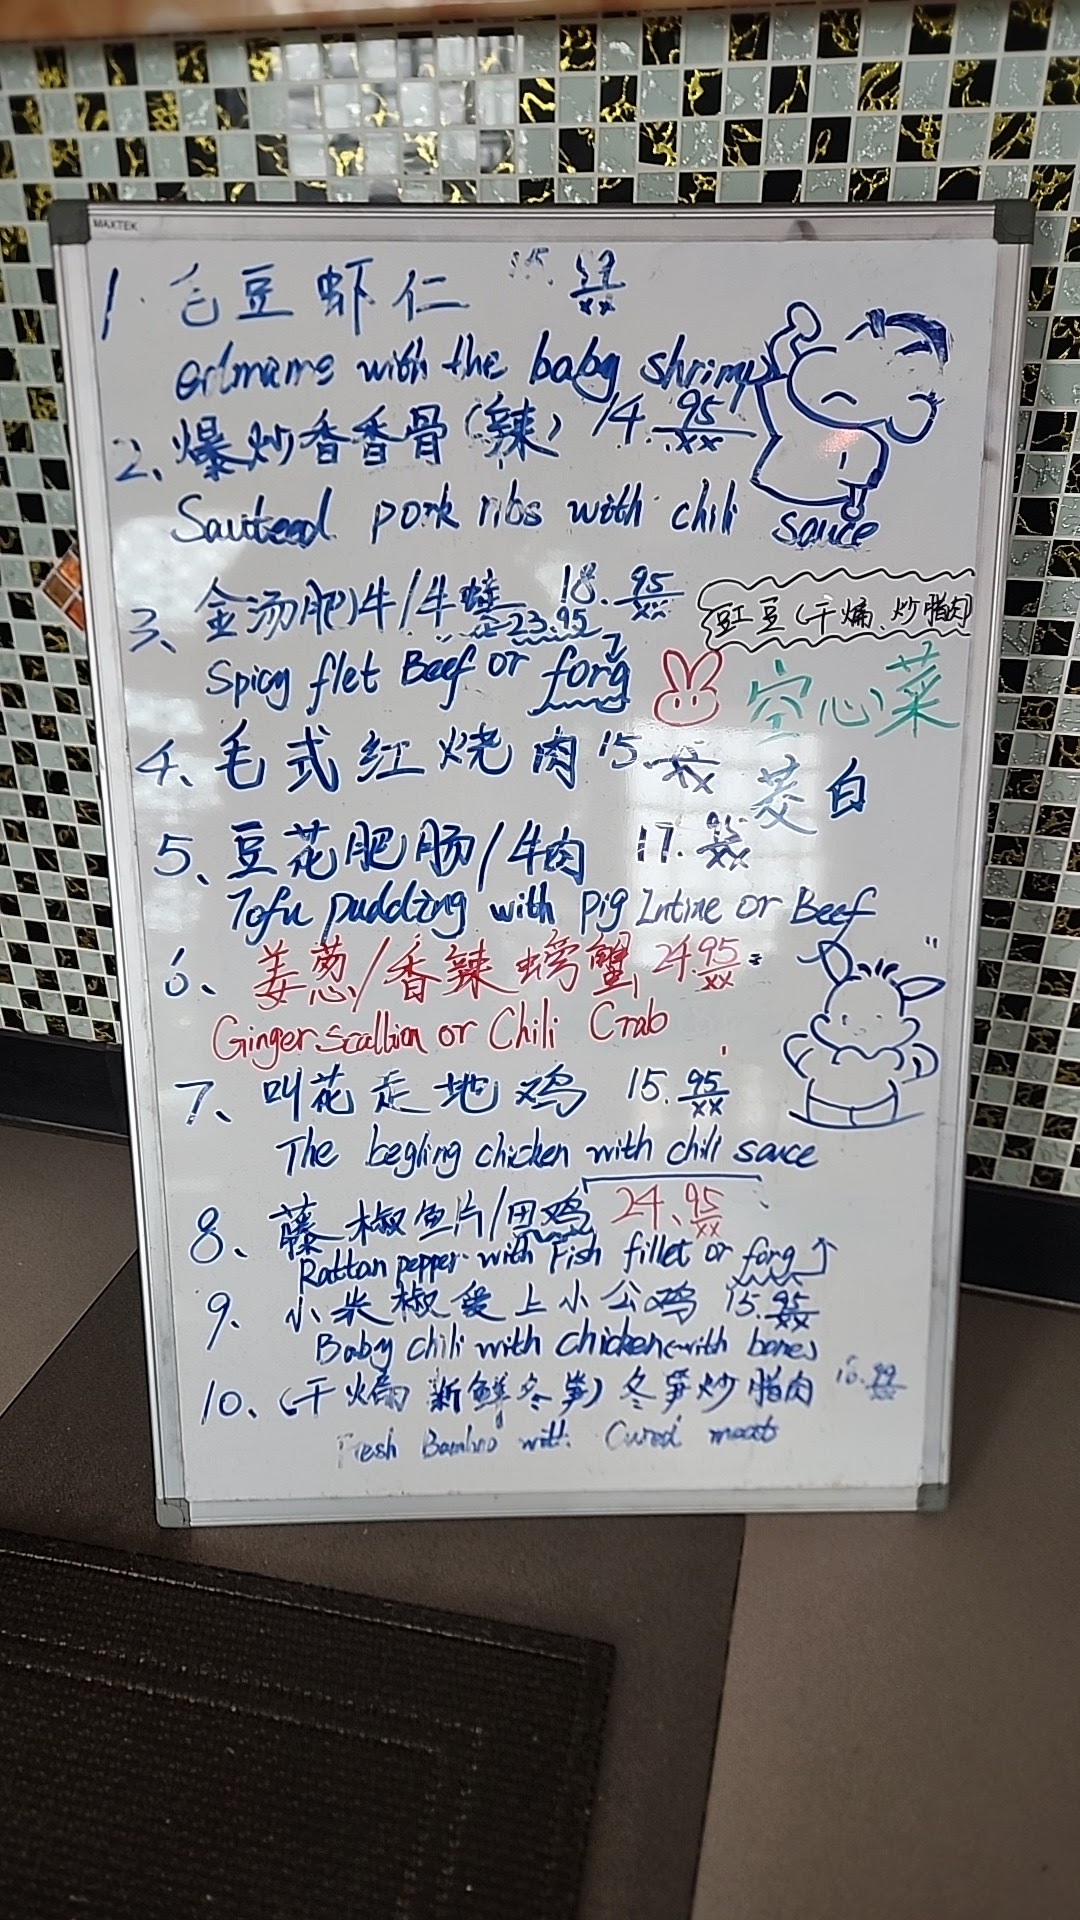 MAXTEK
1. 毛豆虾仁
with the baby shrimp
2、爆炒香香骨(辣) 14.95
xx
Sauteed pork ribs with chili sauce
3、金汤肥牛/牛蛙 18.95
xx
23.95
Spicy flet Beef or forg
豇豆(干煸、炒腊肉)
空心菜
茭白
4、毛式红烧肉 15.
xx
5、豆花肥肠/牛肉 17.95
xx
Tofu pudding with pig Intine or Beef
6、姜葱/香辣螃蟹 24.95
xx
Ginger scallion or Chili Crab
7、叫花走地鸡 15.95
xx
The begling chicken with chili sauce
8、藤椒鱼片/田鸡 24.95
xx
Rattan pepper with Fish fillet or forg
9、小米椒爱上小公鸡 15.95
xx
Baby chili with chicken(with bone)
10、(干煸新鲜冬笋)冬笋炒腊肉
Fresh Bamboo with Cured meat